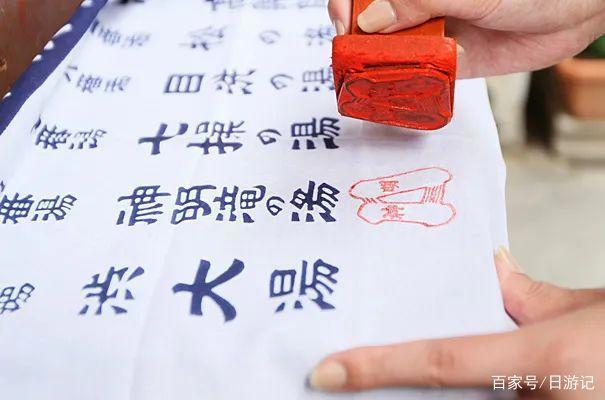 番湯 松の湯
番湯 目洗の湯
番湯 七操の湯
番湯 神明滝の湯
湯 渋大湯
百家号/日游记